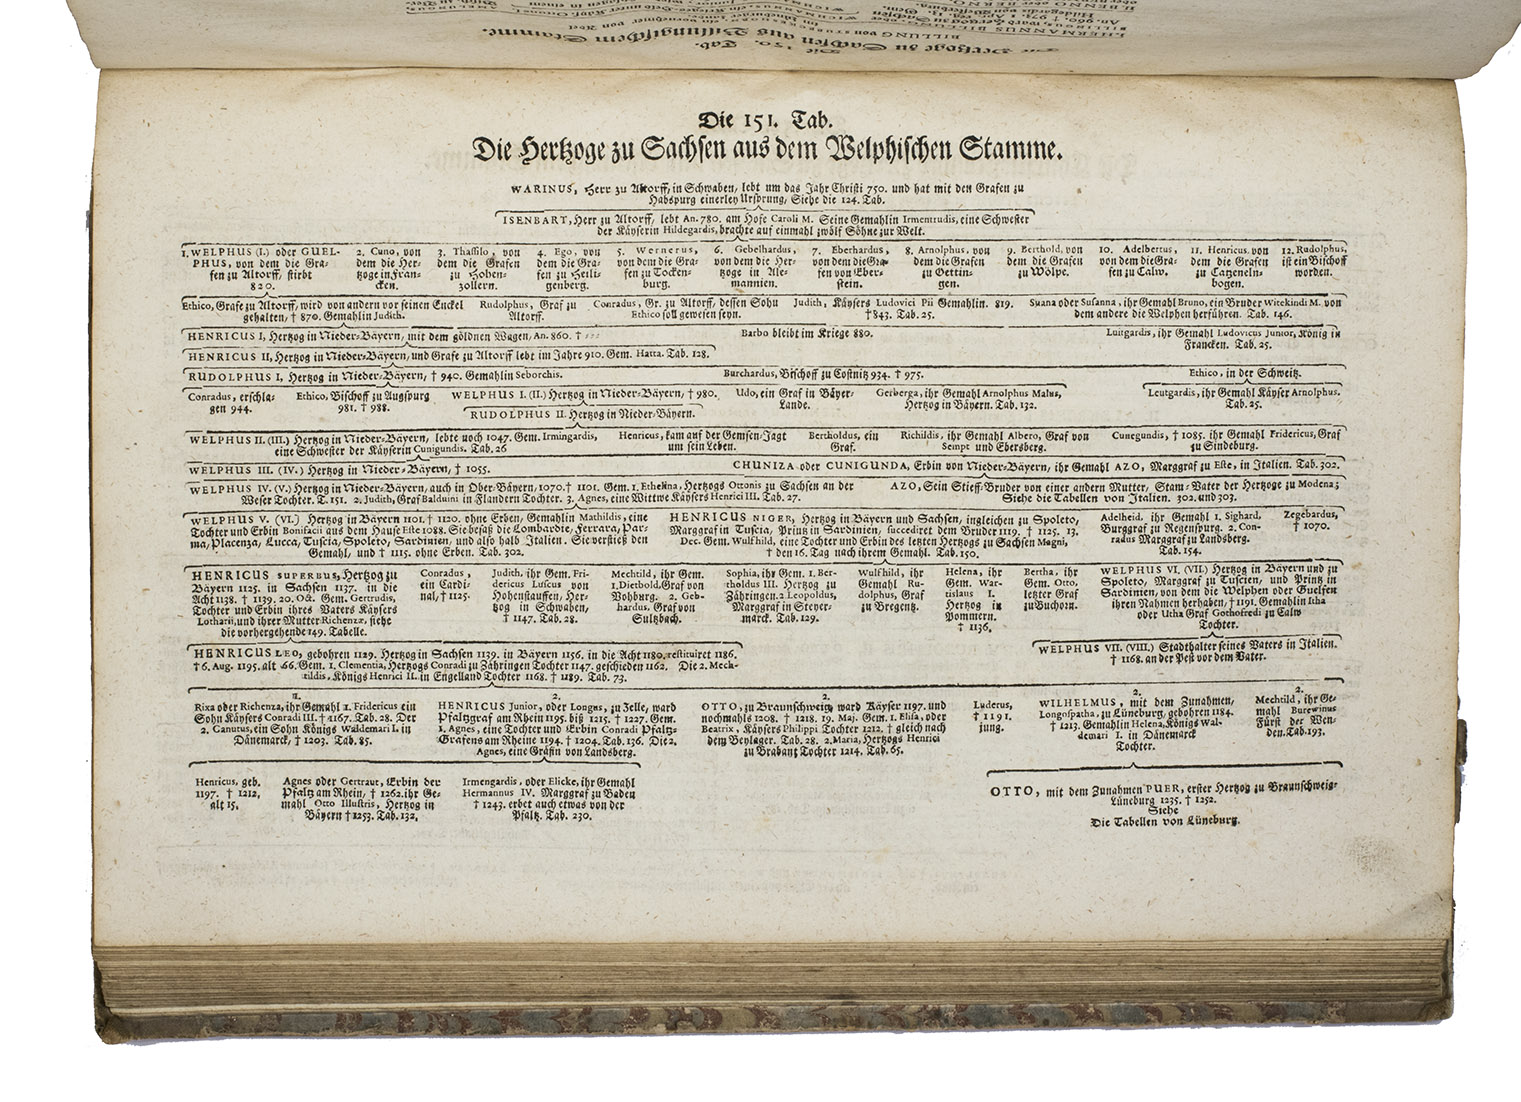 Die 151. Tab.
Die Hertzoge zu Sachsen aus dem Welphischen Stamme.
WARINUS, Herr zu Altorff, in Schwaben, lebt um das Jahr Christi 750. und hat mit den Grafen zu
Habspurg einerley Ursprung, Siehe die 124. Tab.
ISENBART, Herr zu Altorff, lebt An. 780. am Hofe Caroli M. Seine Gemahlin Irmentrudis, eine Schwester
der Käyserin Hildegardis, brachte auf einmahl zwölf Söhne zur Welt.
1. WELPHUS (I.) oder GUEL-
PHUS, von dem die Gra-
fen zu Altorff, stirbt
820.
2. Cuno, von
dem die Her-
tzoge in Fran-
cken.
3. Thassilo, von
dem die Grafen
zu Hohen-
zollern.
4. Ego, von
dem die Gra-
fen zu Heili-
genberg.
5. Wernerus,
von dem die Gra-
fen zu Tocken-
burg.
6. Gebelhardus,
von dem die Her-
tzoge in Ale-
mannien.
7. Eberhardus,
von dem die Gra-
fen von Eber-
stein.
8. Arnolphus, von
dem die Grafen
zu Oettin-
gen.
9. Berthold, von
dem die Grafen
zu Wölpe.
10. Adelbertus,
von dem die Gra-
fen zu Calw.
11. Henricus, von
dem die Grafen
zu Catzeneln-
bogen.
12. Rudolphus,
ist ein Bischoff
worden.
Ethico, Grafe zu Altorff, wird von andern vor seinen Enckel
gehalten, † 870. Gemahlin Judith.
Rudolphus, Graf zu
Altorff.
Conradus, Gr. zu Altorff, dessen Sohn
Ethico soll gewesen seyn.
Judith, Käysers Ludovici Pii Gemahlin. 819.
†843. Tab. 25.
Suana oder Susanna, ihr Gemahl Bruno, ein Bruder Witekindi M. von
dem andere die Welphen herführen. Tab. 146.
HENRICUS I, Hertzog in Nieder-Bäyern, mit dem göldnen Wagen, An. 860. †
Barbo bleibt im Kriege 880.
Luitgardis, ihr Gemahl Ludovicus Junior, König in
Francken. Tab. 25.
HENRICUS II, Hertzog in Nieder-Bäyern, und Grafe zu Altorff lebt im Jahre 910. Gem. Hatta. Tab. 128.
RUDOLPHUS I, Hertzog in Nieder-Bäyern, † 940. Gemahlin Seborchis.
Burchardus, Bischoff zu Costnitz 934. † 975.
Ethico, in der Schweitz.
Conradus, erschla-
gen 944.
Ethico, Bischoff zu Augspurg
981. † 988.
WELPHUS I. (II.) Hertzog in Nieder-Bäyern, † 980.
Udo, ein Graf in Bäyer-
Lande.
Gerberga, ihr Gemahl Arnolphus Malus,
Hertzog in Bäyern. Tab. 132.
Leutgardis, ihr Gemahl Käyser Arnolphus.
Tab. 25.
RUDOLPHUS II. Hertzog in Nieder-Bäyern.
WELPHUS II. (III.) Hertzog in Nieder-Bäyern, lebte noch 1047. Gem. Irmingardis,
eine Schwester der Käyserin Cunigundis. Tab. 26
Henricus, kam auf der Gemsen-Jagt
um sein Leben.
Bertholdus, ein
Graf.
Richildis, ihr Gemahl Albero, Graf von
Sempt und Ebersberg.
Cunegundis, † 1085. ihr Gemahl Fridericus, Graf
zu Sindeburg.
WELPHUS III. (IV.) Hertzog in Nieder-Bäyern, † 1055.
CHUNIZA oder CUNIGUNDA, Erbin von Nieder-Bäyern, ihr Gemahl AZO, Marggraf zu Este, in Italien. Tab. 302.
WELPHUS IV. (V.) Hertzog in Nieder-Bäyern, auch in Ober-Bäyern, 1070. † 1101. Gem. 1. Ethelina, Hertzogs Ottonis zu Sachsen an der
Weser Tochter. T. 151. 2. Judith, Graf Balduini in Flandern Tochter. 3. Agnes, eine Wittwe Käysers Henrici III. Tab. 27.
AZO, Sein Stieff-Bruder von einer andern Mutter, Stam-Vater der Hertzoge zu Modena;
Siehe die Tabellen von Italien. 302. und 303.
WELPHUS V. (VI.) Hertzog in Bäyern 1101. † 1120. ohne Erben, Gemahlin Mathildis, eine
Tochter und Erbin Bonifacii aus dem Hause Este 1088. Sie besaß die Lombardie, Ferrara, Par-
ma, Placenza, Lucca, Tuscia, Spoleto, Sardinien, und also halb Italien. Sie verstieß den
Gemahl, und † 1115. ohne Erben. Tab. 302.
HENRICUS NIGER, Hertzog in Bäyern und Sachsen, ingleichen zu Spoleto,
Marggraf in Tuscia, Printz in Sardinien, succediret dem Bruder 1119. † 1125. 13.
Dec. Gem. Wulfhild, eine Tochter und Erbin des letzten Hertzogs zu Sachsen Magni,
† den 16. Tag nach ihrem Gemahl. Tab. 150.
Adelheid, ihr Gemahl 1. Sighard,
Burggraf zu Regenspurg. 2. Con-
radus Marggraf zu Landsberg.
Tab. 154.
Zegebardus,
† 1070.
HENRICUS SUPERBUS, Hertzog zu
Bäyern 1125. in Sachsen 1137. in die
Acht 1138. † 1139. 20. Oct. Gem. Gertrudis,
Tochter und Erbin ihres Vaters Käysers
Lotharii, und ihrer Mutter Richenzæ, siehe
die vorhergehende 149. Tabelle.
Conradus,
ein Cardi-
nal, † 1125.
Judith, ihr Gem. Fri-
dericus Luscus von
Hohenstauffen, Her-
tzog in Schwaben,
† 1147. Tab. 28.
Mechtild, ihr Gem.
1. Dietbold, Graf von
Vohburg. 2. Geb-
hardus, Graf von
Sultzbach.
Sophia, ihr Gem. 1. Ber-
tholdus III. Hertzog zu
Zähringen. 2. Leopoldus,
Marggraf in Steyer-
marck. Tab. 129.
Wulfhild, ihr
Gemahl Ru-
dolphus, Graf
zu Bregentz.
Helena, ihr
Gem. War-
tislaus I.
Hertzog in
Pommern.
† 1136.
Bertha, ihr
Gem. Otto,
letzter Graf
zu Buchorn.
WELPHUS VI. (VII.) Hertzog in Bäyern und zu
Spoleto, Marggraf zu Tuscien, und Printz in
Sardinien, von dem die Welphen oder Guelfen
ihren Nahmen herhaben, † 1191. Gemahlin Itha
oder Utha Graf Gothofredi zu Calw
Tochter.
HENRICUS LEO, gebohren 1129. Hertzog in Sachsen 1139. in Bäyern 1156. in die Acht 1180. restituiret 1186.
† 6. Aug. 1195. alt 66. Gem. 1. Clementia, Hertzogs Conradi zu Zähringen Tochter 1147. geschieden 1162. Die 2. Mech-
tildis, Königs Henrici II. in Engelland Tochter 1168. † 1189. Tab. 73.
WELPHUS VII. (VIII.) Stadthalter seines Vaters in Italien.
† 1168. an der Pest vor dem Vater.
1.
Rixa oder Richenza, ihr Gemahl 1. Fridericus ein
Sohn Käysers Conradi III. † 1167. Tab. 28. Der
2. Canutus, ein Sohn Königs Waldemari I. in
Dänemarck, † 1203. Tab. 85.
2.
HENRICUS Junior, oder Longus, zu Zelle, ward
Pfaltzgraf am Rhein 1195. biß 1215. † 1227. Gem.
1. Agnes, eine Tochter und Erbin Conradi Pfaltz-
Grafens am Rheine 1194. † 1204. Tab. 136. Die 2.
Agnes, eine Gräfin von Landsberg.
2.
OTTO, zu Braunschweig, ward Käyser 1197. und
nochmahls 1208. † 1218. 19. Maj. Gem. 1. Elisa, oder
Beatrix, Käysers Philippi Tochter 1212. † gleich nach
dem Beylager. Tab. 28. 2. Maria, Hertzogs Henrici
zu Brabant Tochter 1214. Tab. 65.
Luderus,
† 1191.
jung.
2.
WILHELMUS, mit dem Zunahmen,
Longospatha, zu Lüneburg, gebohren 1184.
† 1213. Gemahlin Helena, Königs Wal-
demari I. in Dänemarck
Tochter.
2.
Mechtild, ihr Ge-
mahl Burewinus
Fürst der Wen-
den. Tab. 193.
Henricus, geb.
1197. † 1212,
alt 15.
Agnes oder Gertraut, Erbin der
Pfaltz am Rhein, † 1262. ihr Ge-
mahl Otto Illustris, Hertzog in
Bäyern † 1253. Tab. 132.
Irmengardis, oder Elicke, ihr Gemahl
Hermannus IV. Marggraf zu Baden
† 1243. erbet auch etwas von der
Pfaltz. Tab. 230.
OTTO, mit dem Zunahmen PUER, erster Hertzog zu Braunschweig-
Lüneburg 1235. † 1252.
Siehe
Die Tabellen von Lüneburg.